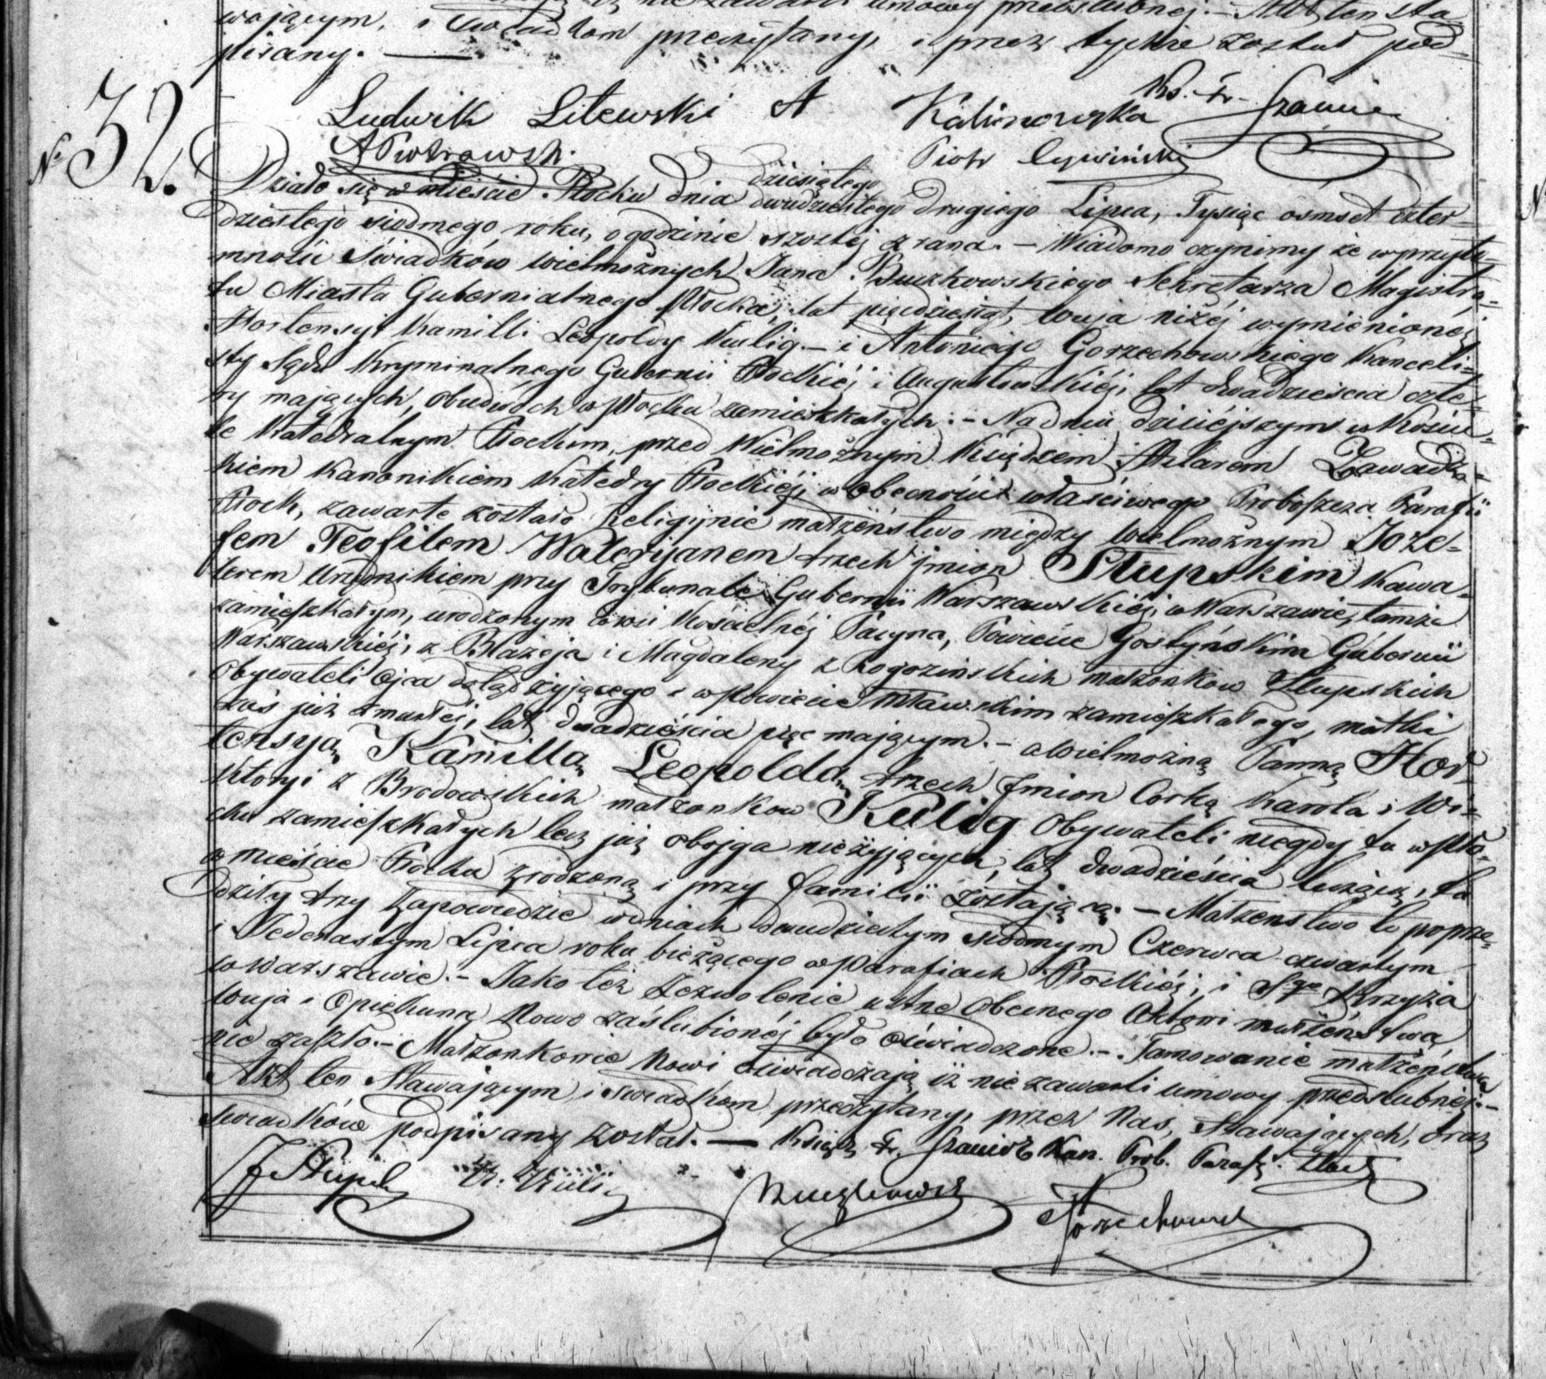 nie zawarli umowy przedślubnej. – Akt ten sta
wającym, i świadkom przeczytany, i przez tychże został pod-
pisany. —
Ludwik Litewski A Kalinowska Ks. Fr.
APiotrowski. Piotr Cywiński
No 32.
dziesiątego
Działo się w Mieście Płocku dnia dwudziestego drugiego Lipca, Tysiąc osmset czter-
dziestego siodmego roku, o godzinie szostej z rana. – Wiadomo czynimy że w przyto-
mności Świadków Wielmożnych Jana Buczkowskiego Sekretarza Magistra-
tu Miasta Gubernialnego Płocka, lat pięćdziesiąt, Wuja niżej wymienionej
Hortensyi Kamilli Leopoldy Kulig – i Antoniego Gorzechowskiego Kanceli-
sty Sądu Kryminalnego Gubernii Płockiéj i Augustowskiéj, lat dwadzieścia czte-
ry mających, obudwoch w Płocku zamieszkałych. – Na dniu dzisiéjszym w Kościé-
le Katedralnym Płockim, przed Wielmożnym Księdzem Hilarem Zawadz-
kiem Kanonikiem Katedry Płockiéj, w obecności właściwego Proboszcza Parafii
Płock, zawarte zostało Religijnie małżeństwo między Wielmożnym Joze-
fem Teofilem Waleryanem trzech jmion Słupskim Kawa-
lerem Urzędnikiem przy Trybunale Gubernii Warszawskiéj, w Warszawie, tamże
zamieszkałym, urodzonym we wsi Kościelnéj Pacyna, Powiecie Gostyńskim Gubernii
Warszawskiéj, z Błażeja i Magdaleny z Rogozinskich małżonkow Słupskich
Obywateli Ojca dotąd żyjącego w Powiecie Mławskim zamieszkałego, matki
zaś już zmarłéj, lat dwadzieścia pięć mającym. – a Wielmożną Panną Hor-
tensyą Kamillą Leopoldą trzech Jmion Corką Karola i Wi-
ktoryi z Brodowskich małżonkow Kulig Obywateli niegdy tu w Pło-
cku zamieszkałych lecz już obojga nieżyjących, lat dwadzieścia liczącą, tu
w mieście Płocku zrodzoną i przy familii zostającą. – Małżeństwo to poprze-
dziły trzy Zapowiedzie w dniach dwudziestym siodmym Czerwca czwartym
i Jedenastym Lipca roku bieżącego w Parafiach Płockiéj, i Sgo Krzyża
w Warszawie. – Jako też Zezwolenie ustne obecnego Aktowi małżeństwa
Wuja i Opiekuna Nowo zaślubionéj było oświadczone. – Tamowanie małżeństwa
nie zaszło. – Małżonkowie Nowi oświadczają iż nie zawarli umowy przedślubnéj. –
Akt ten Stawającym i świadkom przeczytany, przez Nas, Stawających, oraz
Świadków podpisany został. — Ksiądz Fr. Kan. Prob. Parafi.
Buczkowski Gorzechowski